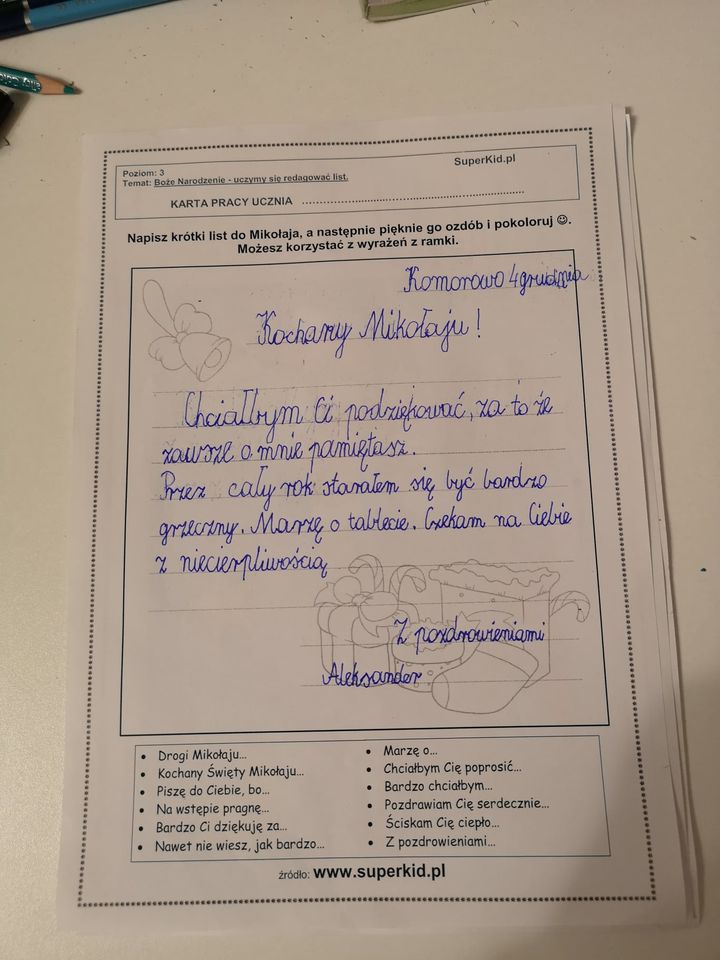 SuperKid.pl
Poziom: 3
Temat: Boże Narodzenie - uczymy się redagować list.
KARTA PRACY UCZNIA ..........................................................
Napisz krótki list do Mikołaja, a następnie pięknie go ozdób i pokoloruj ☺.
Możesz korzystać z wyrażeń z ramki.
Komorowo 4 grudnia
Kochany Mikołaju!
Chciałbym Ci podziękować, za to że
zawsze o mnie pamiętasz.
Przez cały rok starałem się być bardzo
grzeczny. Marzę o tablecie. Czekam na Ciebie
z niecierpliwością
Z pozdrowieniami
Aleksander
• Drogi Mikołaju...
• Kochany Święty Mikołaju...
• Piszę do Ciebie, bo...
• Na wstępie pragnę...
• Bardzo Ci dziękuję za...
• Nawet nie wiesz, jak bardzo...
• Marzę o...
• Chciałbym Cię poprosić...
• Bardzo chciałbym...
• Pozdrawiam Cię serdecznie...
• Ściskam Cię ciepło...
• Z pozdrowieniami...
źródło: www.superkid.pl